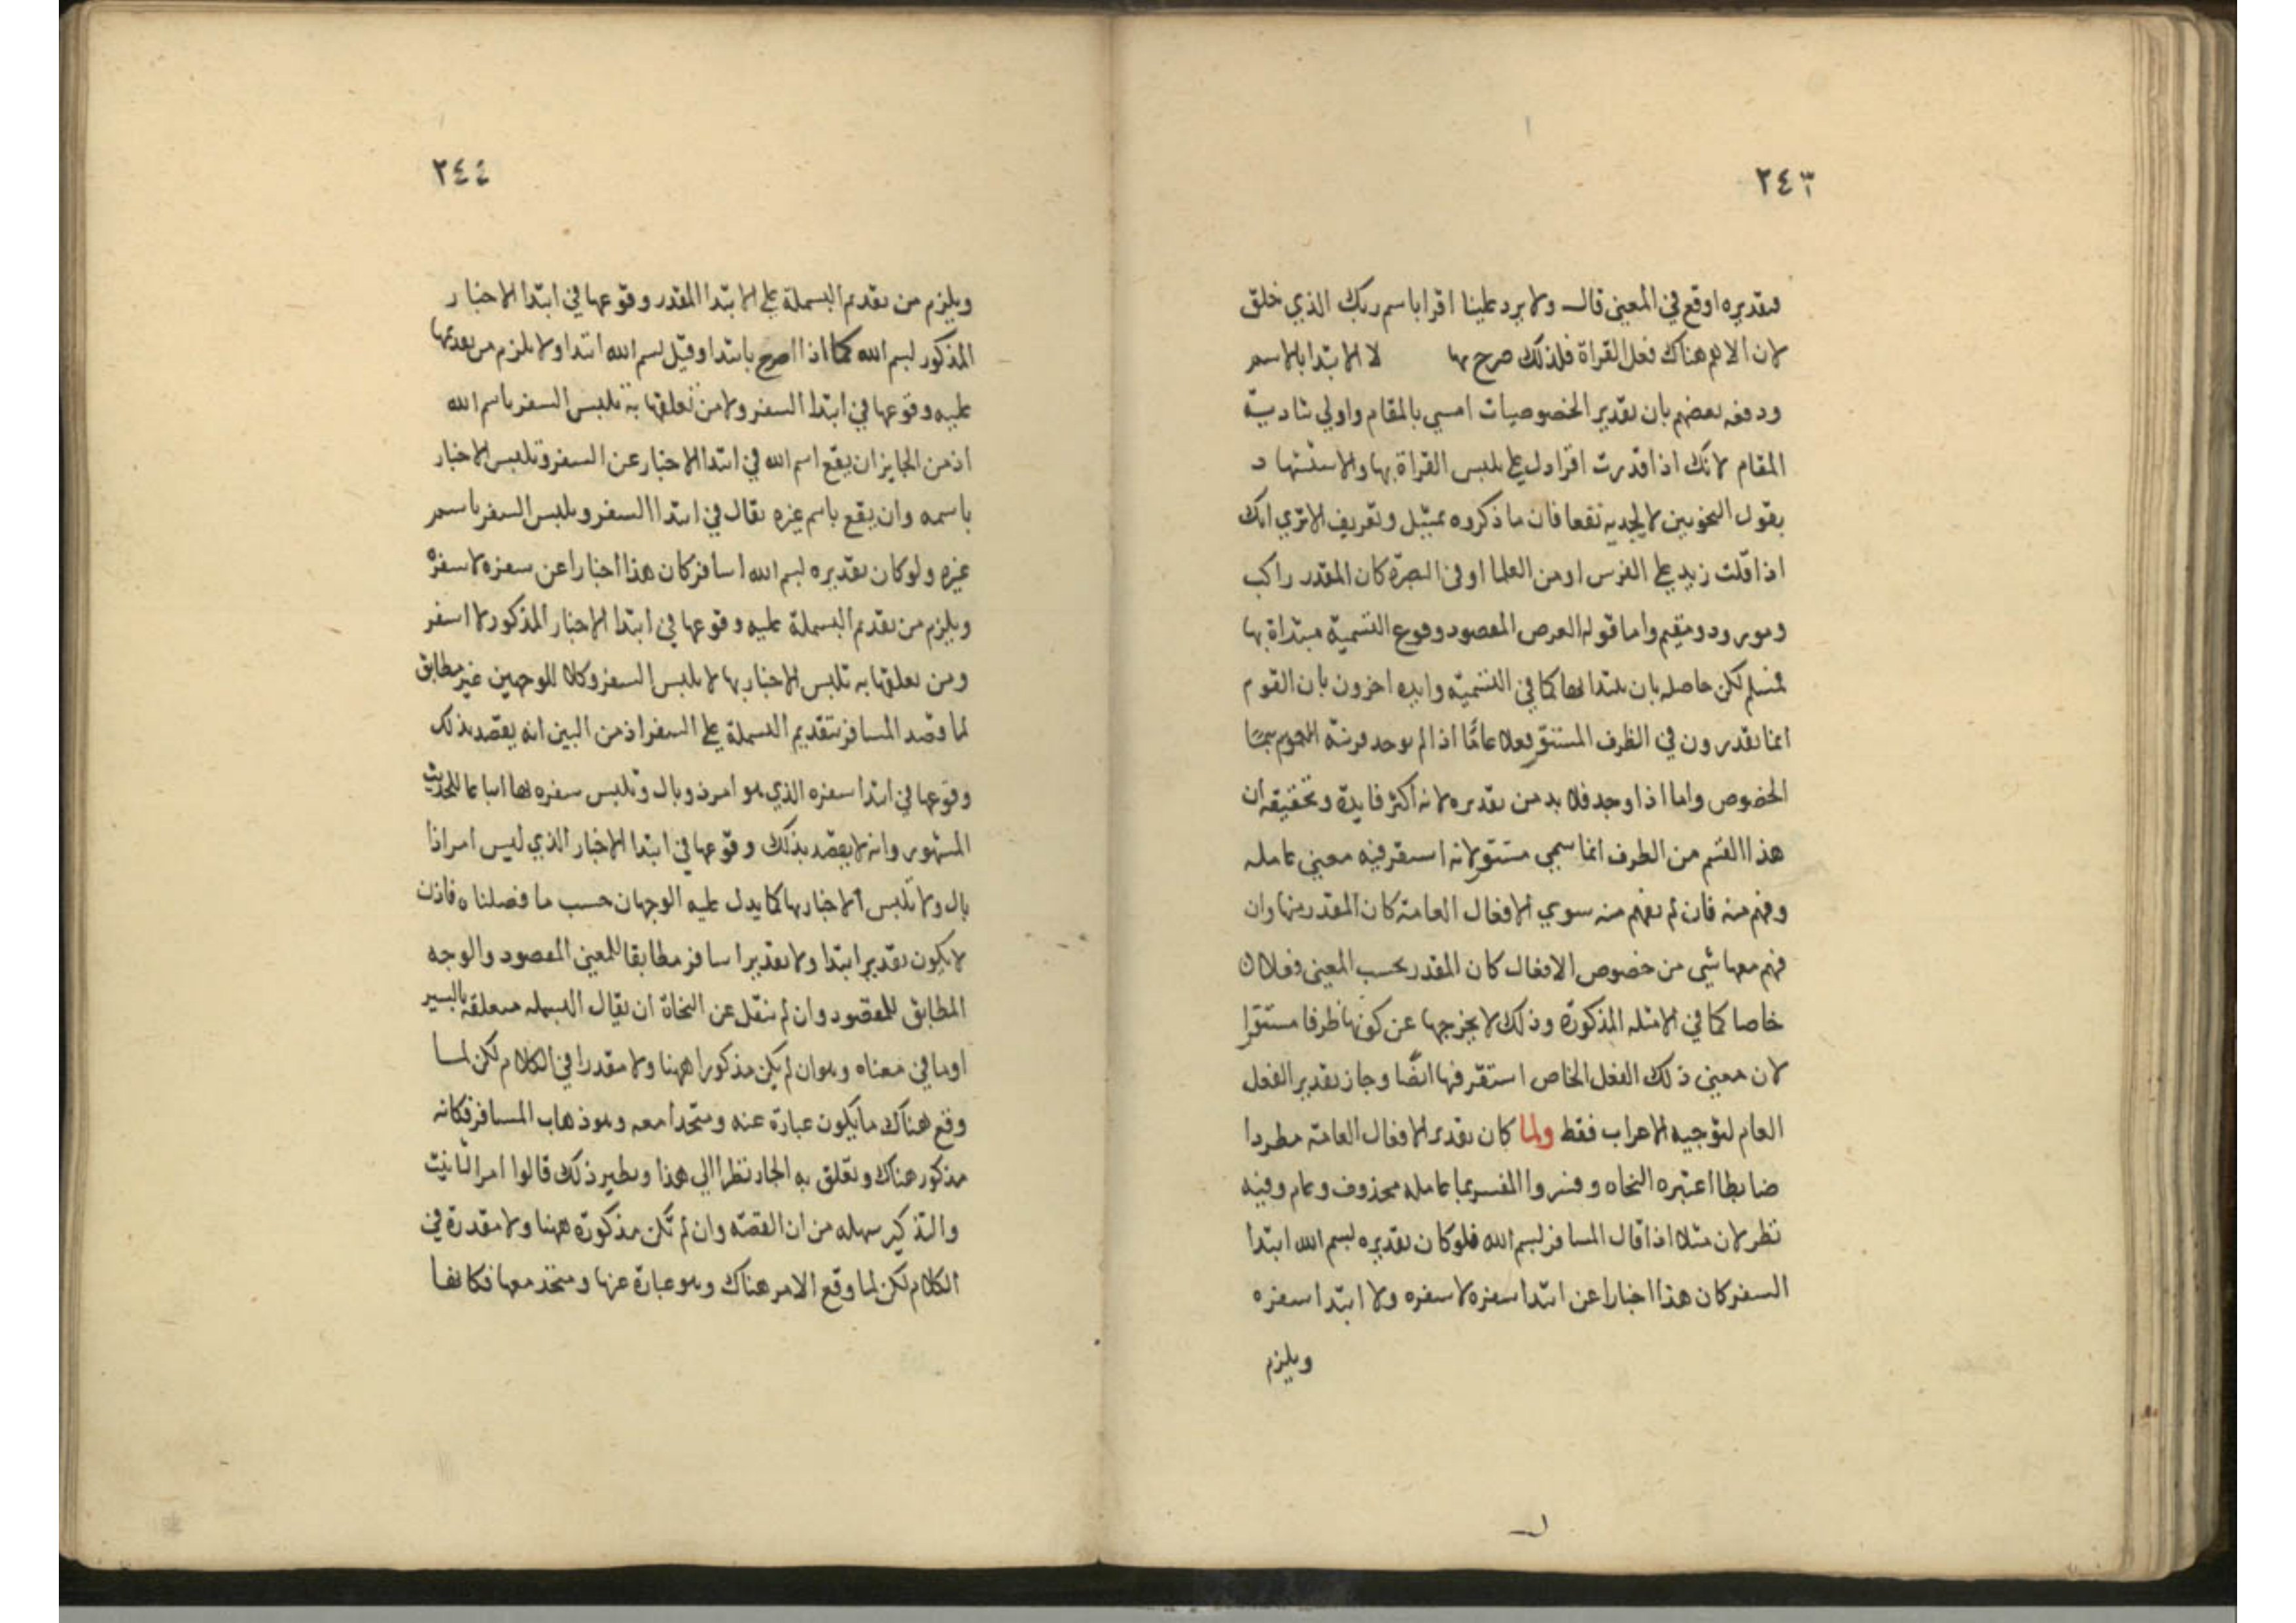 ٢٤٣
فتقديره اوقع في المعني قال ولا يرد علينا اقرا باسم ربك الذي خلق
لان الاهم هناك فعل القراة فلذلك صرح بها لا الابتدا بالاسم
ودفعه بعضهم بان تقدير الخصوصيات امس بالمقام واولي بتادية
المقام لانك اذا قدرت اقرا دل علي تلبس القراة بها والاستشهاد
بقول النحويين لا يجديه نفعا فان ما ذكروه تمثيل وتعريف الاتري انك
اذا قلت زيد علي الفرس او من العلما او في البصرة كان المقدر راكب
ومعدود ومقيم واما قوله الغرض المقصود وقوع التسمية مبتداة بها
فمسلم لكن حاصله بان يبتدا بها كما في التسمية وايده اخرون بان القوم
انما يقدرون في الظرف المستقر فعلا عاما اذا لم يوجد قرينة
الخصوص واما اذا وجد فلا بد من تقديره لانه اكثر فايدة وتحقيقه ان
هذا القسم من الظرف انما سمي مستقرا لانه استقر فيه معني عامله
وفهم منه فان لم يفهم منه سوي الافعال العامة كان المقدر منها وان
فهم معها شي من خصوص الافعال كان المقدر بحسب المعني فعلا
خاصا كما في الامثلة المذكورة وذلك لا يخرجها عن كونها ظرفا مستقرا
لان معني ذلك الفعل الخاص استقر فيها ايضا وجاز تقدير الفعل
العام لتوجيه الاعراب فقط ولما كان تقدير الافعال العامة مطردا
ضابطا اعتبره النحاه وفسروا المفسر بما عامله محذوف وعام وفيه
نظر لان مثلا اذا قال المسافر بسم الله فلو كان تقديره بسم الله ابتدا
السفر كان هذا اخبارا عن ابتدا سفره لا سفره ولا ابتدا سفره
ويلزم
٢٤٤
ويلزم من تقديم البسملة علي الابتدا المقدر وقوعها في ابتدا الاخبار
المذكور بسم الله كما اذا صرح بابتدا وقيل بسم الله ابتدا ولا يلزم من تقديمها
عليه وقوعها في ابتدا السفر ولا من تعلقها به تلبس السفر باسم الله
اذ من الجايز ان يقع اسم الله في ابتدا الاخبار عن السفر وتلبس الاخبار
باسمه وان يقع باسم غيره يقال في ابتدا السفر وتلبس السفر باسم
غيره ولو كان تقديره بسم الله اسافر كان هذا اخبارا عن سفره لا سفره
ويلزم من تقديم البسملة عليه وقوعها في ابتدا الاخبار المذكور لا السفر
ومن تعلقها به تلبس الاخبار بها لا تلبس السفر وكلا الوجهين غير مطابق
لما قصد المسافر بتقديم البسملة علي السفر اذ من البين انه يقصد بذلك
وقوعها في ابتدا سفره الذي هو امر ذو بال وتلبس سفره بها اتباعا للحديث
المشهور وانه لا يقصد بذلك وقوعها في ابتدا الاخبار الذي ليس امرا ذا
بال ولا تلبس الاخبار بها كما يدل عليه الوجهان حسب ما فصلناه فاذن
لا يكون تقدير ابتدا ولا تقدير اسافر مطابقا للمعني المقصود والوجه
المطابق للمقصود وان لم ينقل عن النحاة ان يقال البسمله متعلقة بالسير
او ما في معناه وهو ان لم يكن مذكورا ههنا ولا مقدرا في الكلام لكن لما
وقع هناك ما يكون عبارة عنه ومتحدا معه وهو ذهاب المسافر فكانه
مذكور هناك وتعلق به الجار نظرا الي هذا ونظير ذلك قالوا امر التانيث
والتذكير سهله من ان القصة وان لم تكن مذكورة ههنا ولا مقدرة في
الكلام لكن لما وقع الامر هناك وهو عبارة عنها ومتحد معها فكانها